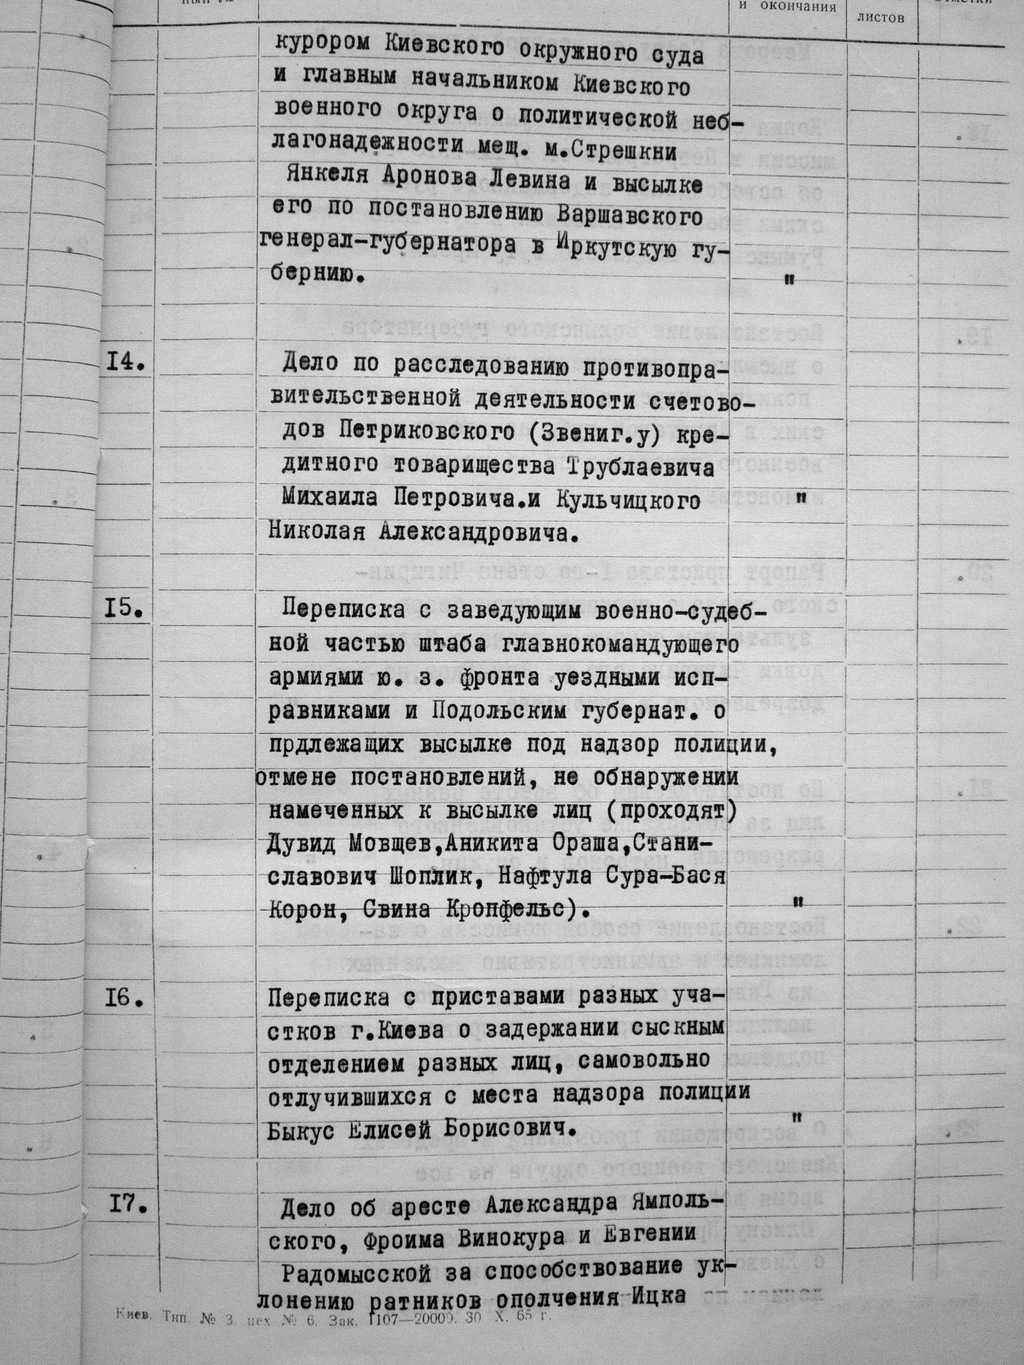 и окончания
листов
курором Киевского окружного суда
и главным начальником Киевского
военного округа о политической неб-
лагонадежности мещ. м.Стрешкни
Янкеля Аронова Левина и высылке
его по постановлению Варшавского
генерал-губернатора в Иркутскую гу-
бернию. "
I4. Дело по расследованию противопра-
вительственной деятельности счетово-
дов Петриковского (Звениг.у) кре-
дитного товарищества Трублаевича
Михаила Петровича.и Кульчицкого "
Николая Александровича.
I5. Переписка с заведующим военно-судеб-
ной частью штаба главнокомандующего
армиями ю. з. фронта уездными исп-
равниками и Подольским губернат. о
прдлежащих высылке под надзор полиции,
отмене постановлений, не обнаружении
намеченных к высылке лиц (проходят)
Дувид Мовщев,Аникита Ораша,Стани-
славович Шоплик, Нафтула Сура-Бася
Корон, Свина Кропфельс). "
I6. Переписка с приставами разных уча-
стков г.Киева о задержании сыскным
отделением разных лиц, самовольно
отлучившихся с места надзора полиции
Быкус Елисей Борисович. "
I7. Дело об аресте Александра Ямполь-
ского, Фроима Винокура и Евгении
Радомысской за способствование ук-
лонению ратников ополчения Ицка
Киев. Тип. № 3. цех № 6. Зак. 1107—20000. 30 X. 65 г.